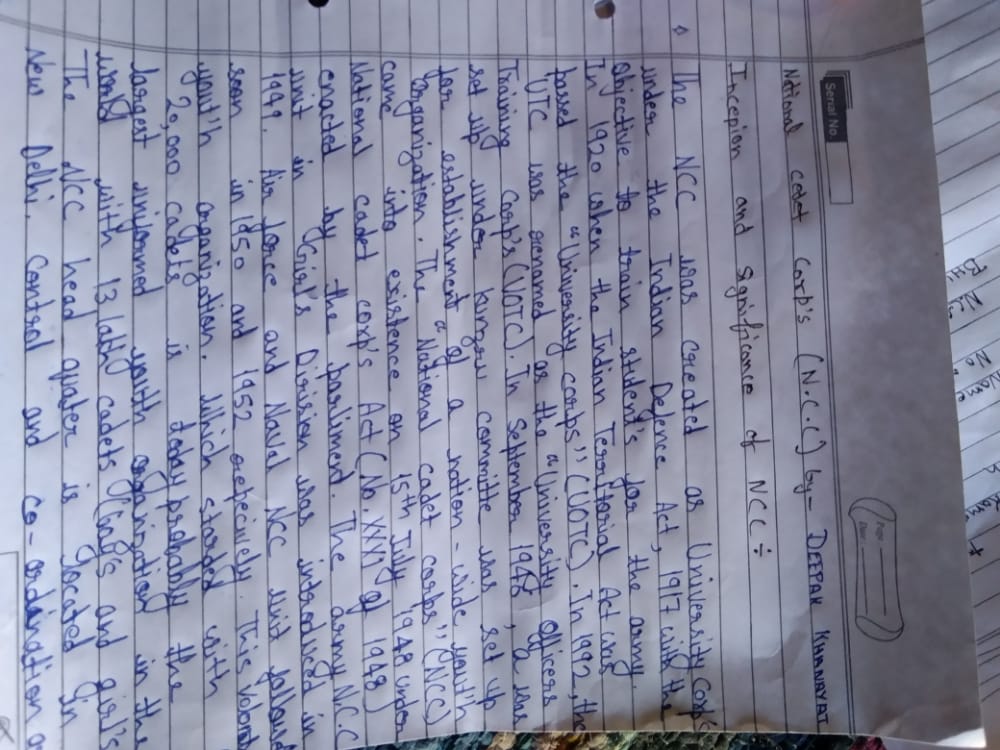 Serial No.
Page
Date
National cadet corp's (N.C.C) by- DEEPAK KHANAYAT
Incepion and Significance of NCC ÷
The NCC was created as University Corp's
under the Indian Defence Act, 1917 with the
Objective to train student's for the army.
In 1920 when the Indian Territorial Act was
passed the "University corps" (UOTC). In 1942, the
UTC was renamed as the "University Officers
Training Corp's (UOTC). In September 1948, a was
set up under kunzru committe was set up
for establishment of a nation-wide youth
Organization. The "National cadet corps" (NCC)
came into existence on 15th July 1948 under
National cadet corp's Act (No. XXXI of 1948)
enacted by the parliment. The army N.C.C
unit in Girl's Division was introduced in
1949. Air force and Naval NCC unit followed
soon in 1950 and 1952 respecively. This
youth organization. Which started with
20,000 cadets is today probably the
largest uniformed youth organization in the
world with 13 lakh cadets (boy's and girl's
The NCC head quater is located in
New Delhi. Control and co-ordination
BHI
No.
Name